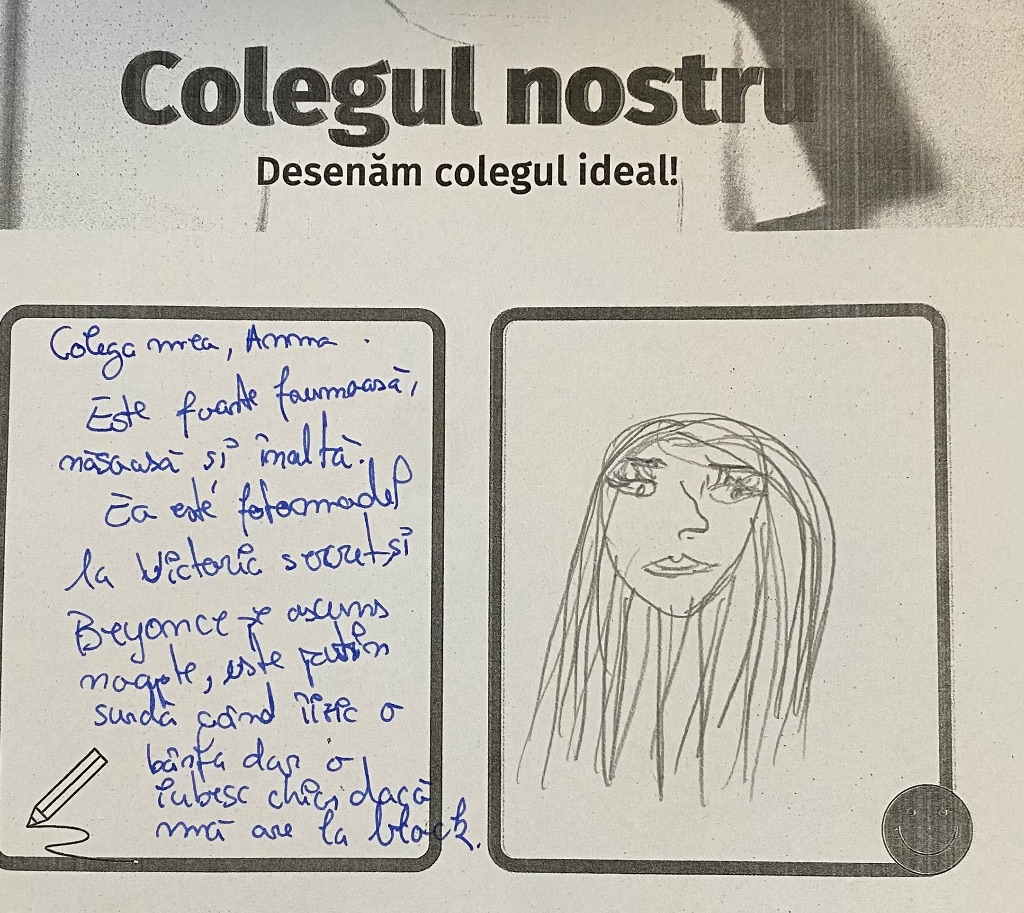 Colegul nostru
Desenăm colegul ideal!
Colega mea, Anna.
Este foarte frumoasă,
năsoasă și înaltă.
Ea este fotomodel
la Victoria secret și
Beyonce pe ascuns
noapte, este puțin
surdă când îi zic o
bârfa dar o
iubesc chiar dacă
mă are la block.